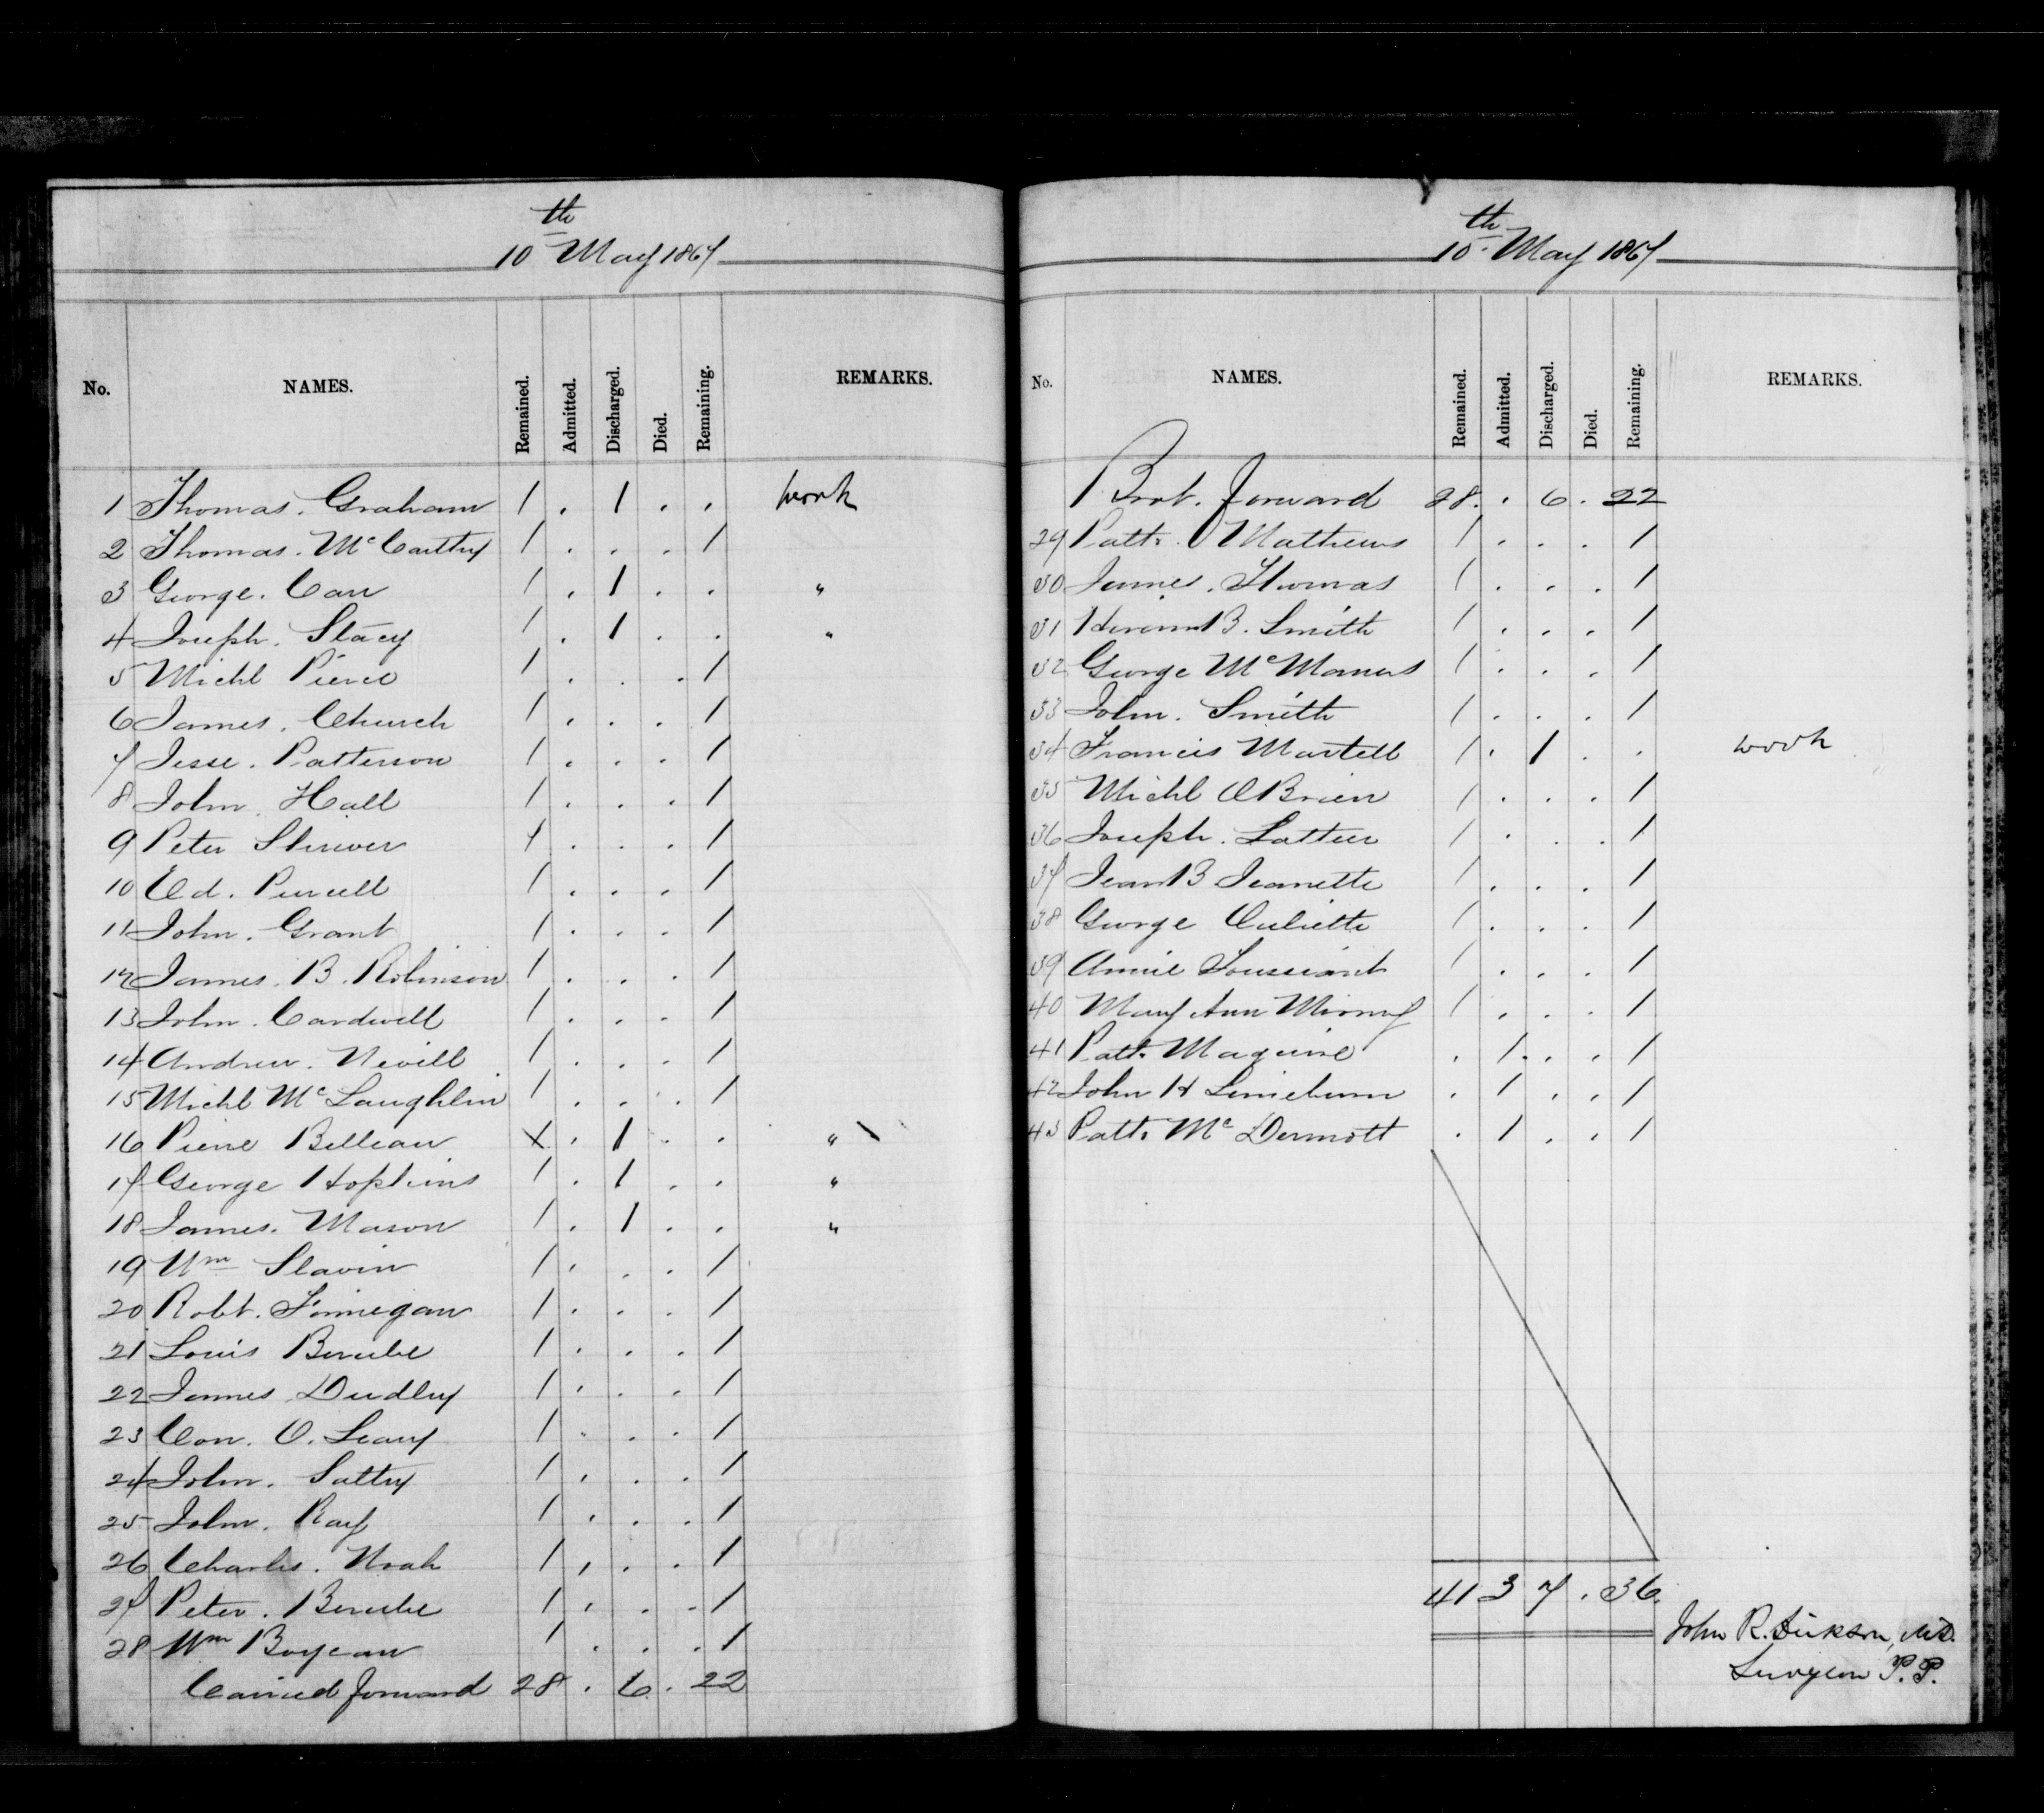 10th May 1867
No. NAMES. Remained. Admitted. Discharged. Died. Remaining. REMARKS.
1 Thomas. Graham 1 . 1 . . work
2 Thomas. McCarthy 1 . . . 1
3 George. Carr 1 . 1 . . "
4 Joseph. Stacy 1 . 1 . . "
5 Michl Pierce 1 . . . 1
6 James. Church 1 . . . 1
7 Jesse. Patterson 1 . . . 1
8 John. Hall 1 . . . 1
9 Peter 1 . . . 1
10 Ed. Purcell 1 . . . 1
11 John. Grant 1 . . . 1
12 James. B. Robinson 1 . . . 1
13 John. Cardwell 1 . . . 1
14 Andrew. Nevill 1 . . . 1
15 Michl McLaughlin 1 . . . 1
16 Pierre Belleau 1 . 1 . . "
17 George Hopkins 1 . 1 . . "
18 James. Mason 1 . 1 . . "
19 Wm Slavin 1 . . . 1
20 Robt. Finnegan 1 . . . 1
21 Louis Berube 1 . . . 1
22 James Dudley 1 . . . 1
23 Con. O. Leary 1 . . . 1
24 John. 1 . . . 1
25 John. Ray 1 . . . 1
26 Charles. Noah 1 . . . 1
27 Peter. Berube 1 . . . 1
28 Wm Boyeau 1 . . . 1
Carried forward 28 . 6 . 22
10th May 1867
No. NAMES. Remained. Admitted. Discharged. Died. Remaining. REMARKS.
Brot. forward 28 . 6 . 22
29 Patt. Mathews 1 . . . 1
30 James. Thomas 1 . . . 1
31 Hiram B. Smith 1 . . . 1
32 George McManus 1 . . . 1
33 John. Smith 1 . . . 1
34 Francis Martell 1 . 1 . . work
35 Michl OBrien 1 . . . 1
36 Joseph. 1 . . . 1
37 Jean B Jeanette 1 . . . 1
38 George 1 . . . 1
39 Annie 1 . . . 1
40 Mary Ann 1 . . . 1
41 Patt. Maguire . 1 . . 1
42 John H . 1 . . 1
43 Patt. McDermott . 1 . . 1
41 3 7 . 36
John R. Dickson, M.D.
Surgeon P.P.